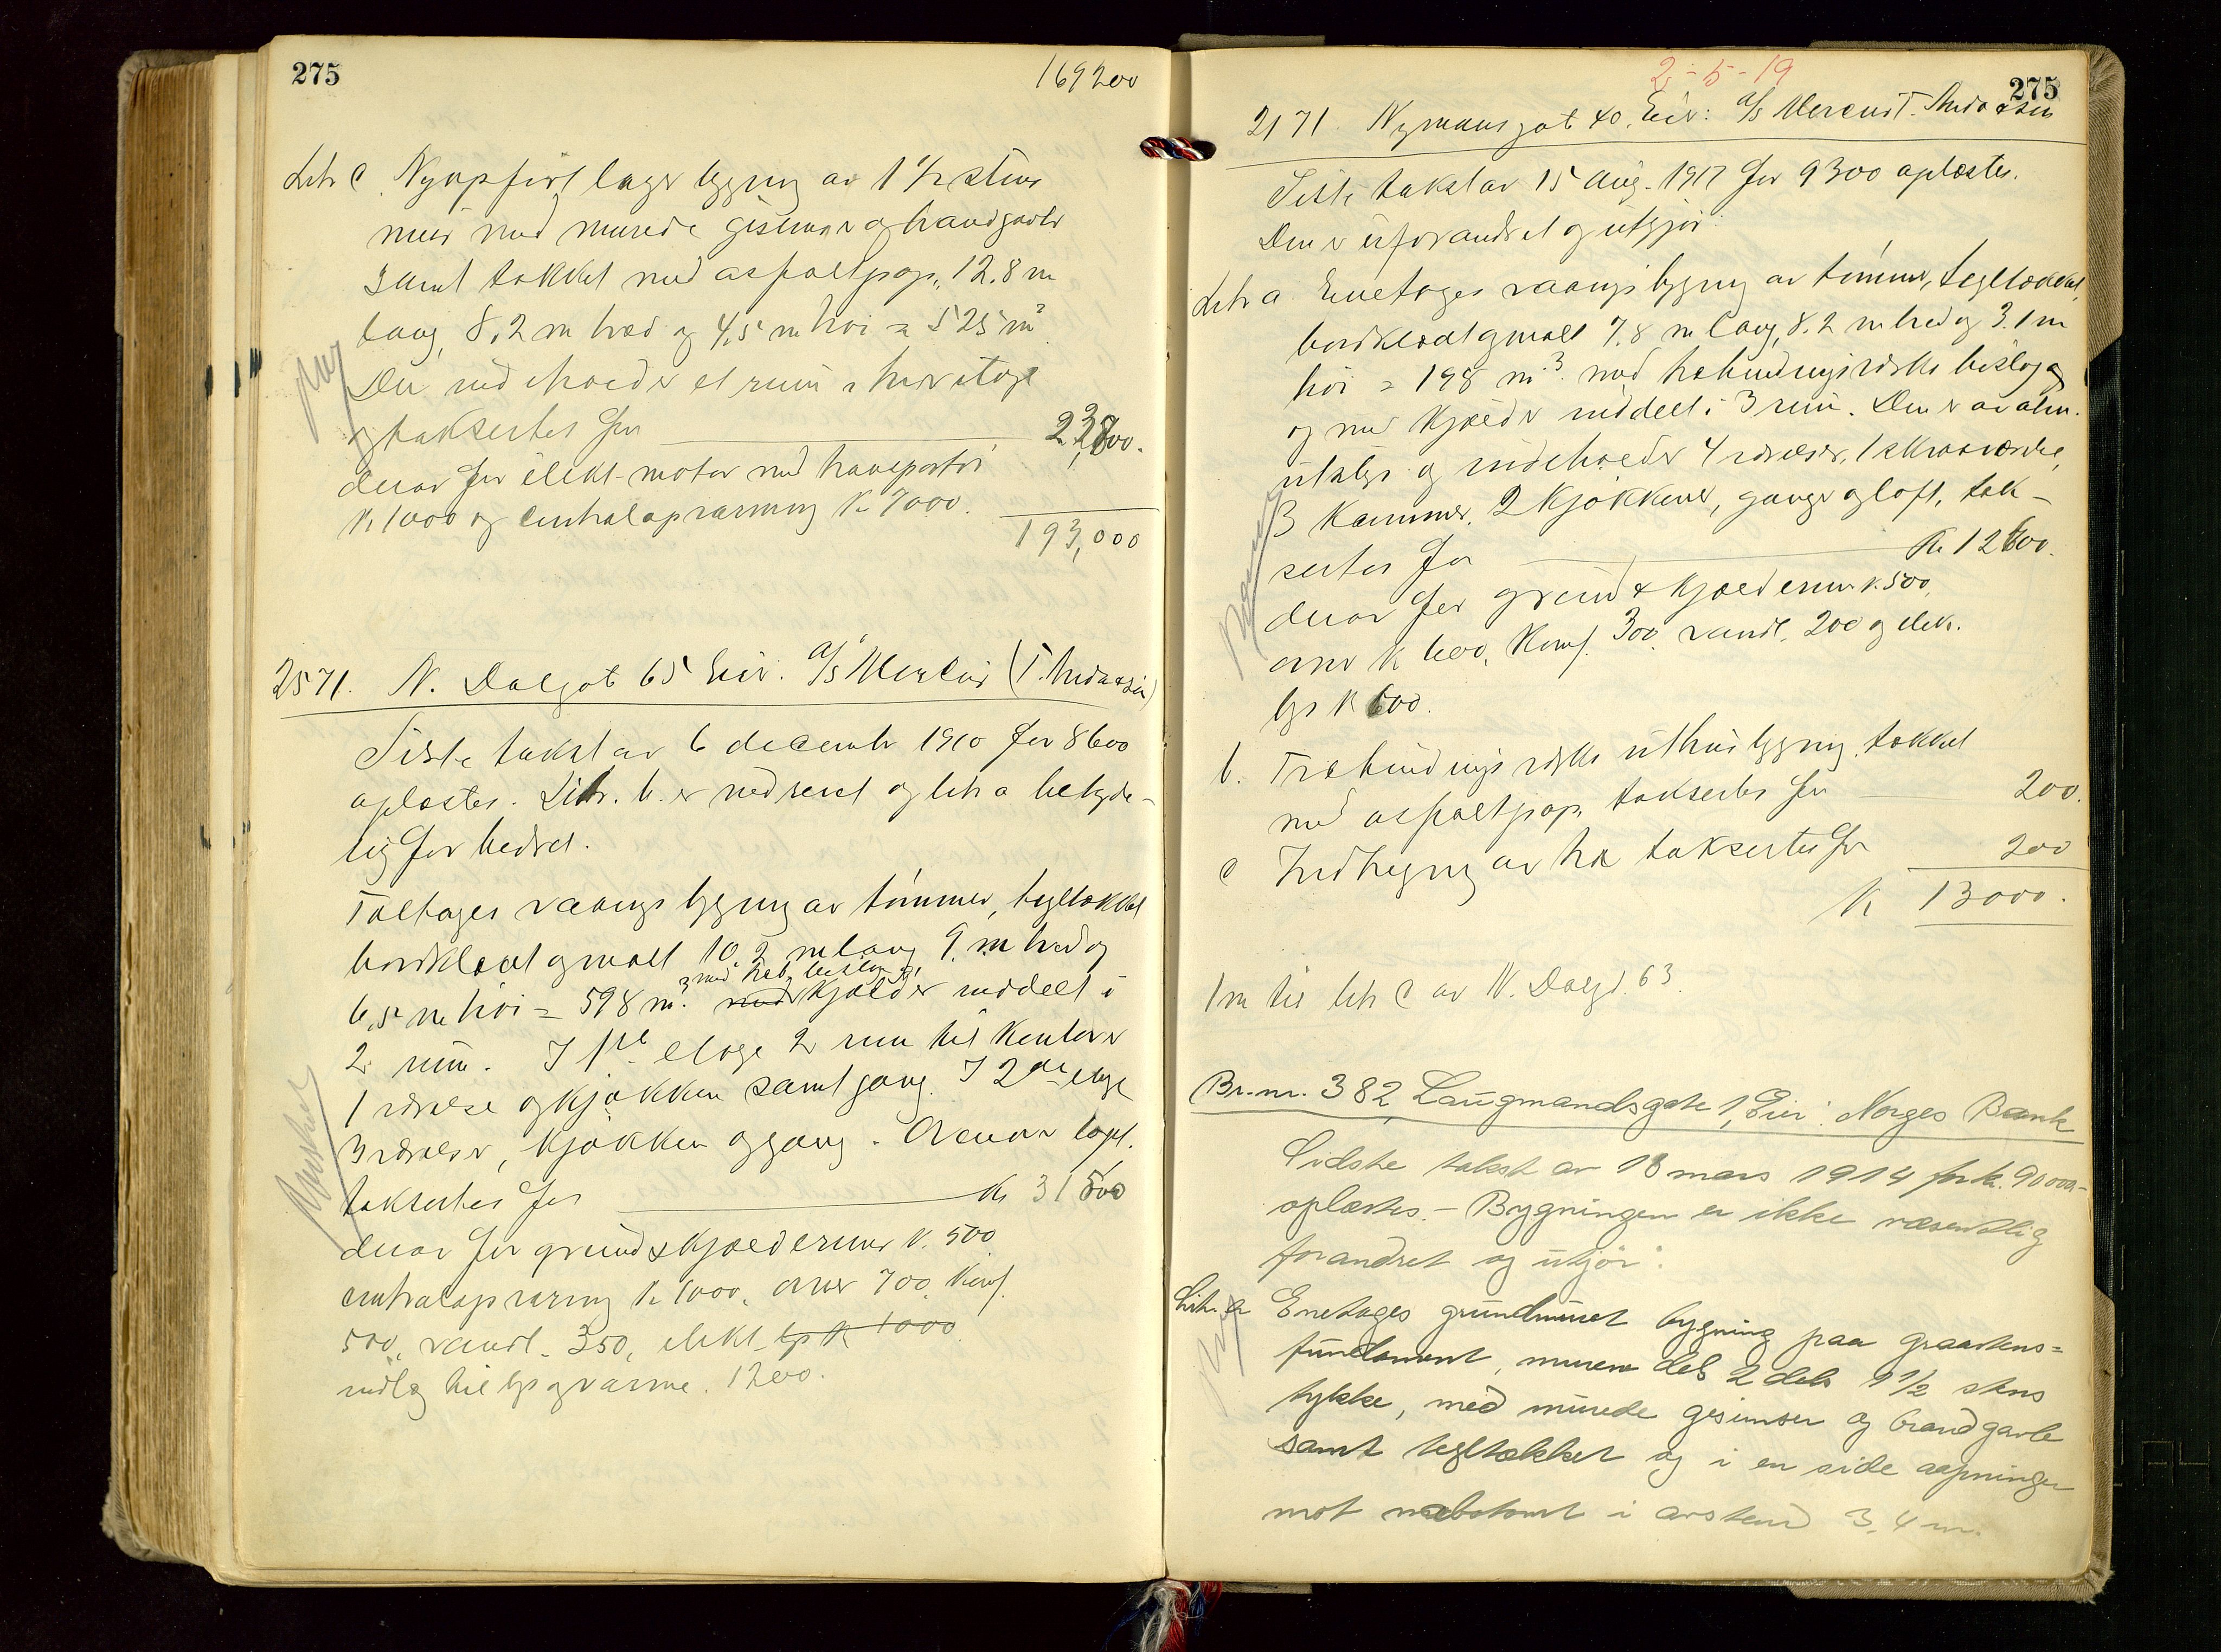 275
169200
Litr C. Nyopført lager bygning av 1 1/2 stens
mur med murede gesimser og brandgavler
samt tækket med asfaltpap, 12.8 m
lang, 8,2 m bred og 4,5 m høi = 525 m³
Den indeholder et rum i hver etage
og takseres for 23,800.
derav for elekt. motor med transportør
K 1000 og centralopvarming K 7000.
193,000
2571. N. Dalgat 65 Eier: A/S Mercur (T. Anda & søn)
Siste takst av 6 decembr 1910 for 8600
oplæstes. Litr. b. er nedrevet og litr a betyde-
lig forbedret.
Toetages vaaningsbygning av tømmer, tegltækket
bordklædt og malt 10.2 m lang 9. m bred og
6,5 m høi = 598 m³. med kjælder inddelt i
med træb. beslag og
2 rum. I 1ste etage 2 rum til kontorer
1 værelse og kjøkken samt gang. I 2den etage
3 værelser, kjøkken og gang. Ovenover loft.
takseres for K 31500
derav for grund & kjældermur K. 500
centralopvarming K 1000, ovner 700, Komf.
500, vandl. 350, elekt. lys K 1000
indlæg til lys og varme. 1200.
2-5-19
275
2171. Nymansgat 40. Eier: A/S Mercur T. Anda & søn
Siste takst av 15 aug. 1917 for 9300 oplæstes.
Den er uforandret og utgjør:
Litr a. Enetages vaaningsbygning av tømmer, tegltækket,
bordklædt og malt 7.8 m lang, 8.2 m bred og 3.1 m
høi = 198 m³. med træbindingsverks beslag og
og med kjælder inddelt i 3 rum. Den er av alm.
utstyr og indeholder 4 værelser, 1 skraaværelse,
3 kammer, 2 kjøkkener, ganger og loft, tak-
seres for K 12600.
derav for grund & kjældermur K. 500,
ovner K 600, Komf. 300, vandl. 200 og elek.
lys K 600.
b. Træbindingsverks uthusbygning, tækket
med asfaltpap, takseres for 200.
c Indhegning av træ takseres for 200
K 13000.
1 m til litr C av N. Dalgt. 63.
Br.-nr. 382, Laugmandsgate 1, Eier: Norges Bank
Sidste takst av 18 mars 1914 for kr. 90000.-
oplæstes. - Bygningen er ikke væsentlig
forandret og utgjør:
Litr. a Enetages grundmuret bygning paa graastens=
fundament, murene dels 2 dels 1 1/2 stens
tykke, med murede gesimser og brandgavle
samt tegltækket og i en side aapninger
mot nabotomt i avstand 3,4 m.